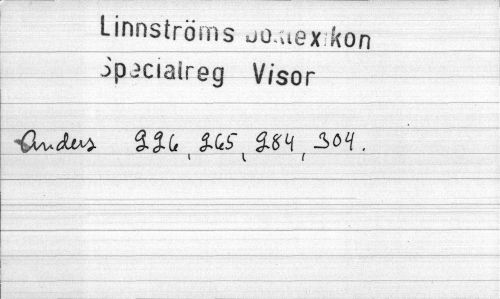 Linnströms Boklexikon
Specialreg Visor
Anders 226, 265, 284, 304.